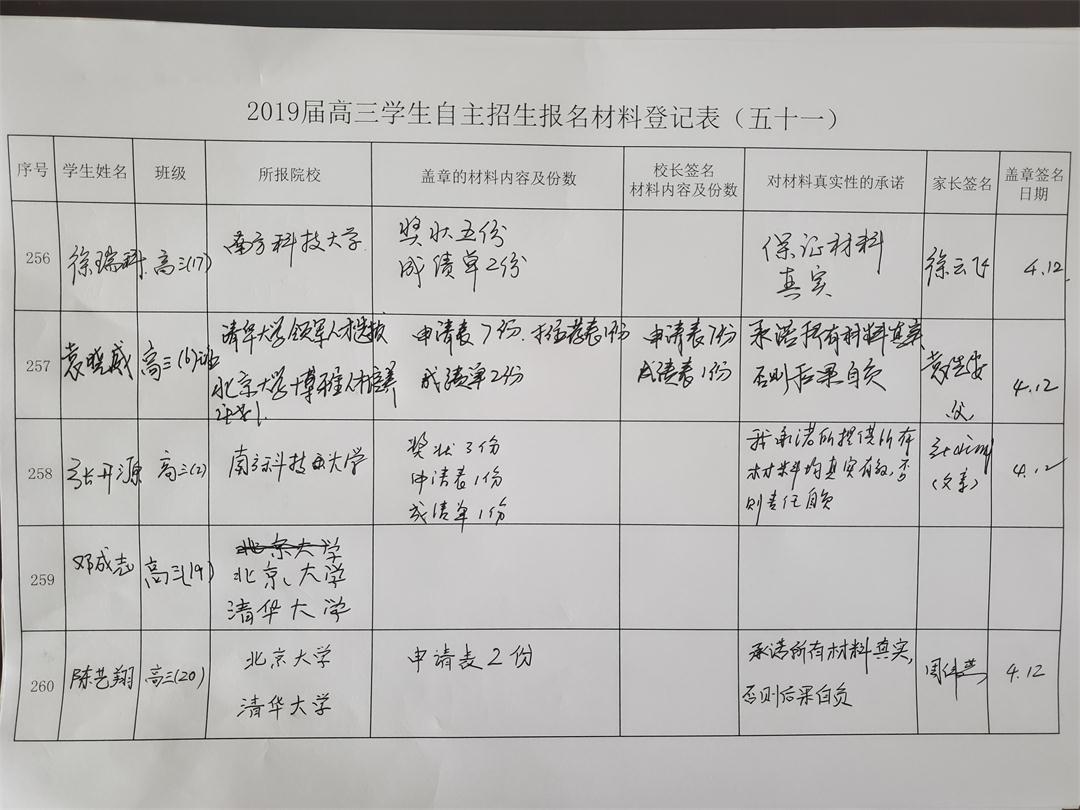 2019届高三学生自主招生报名材料登记表（五十一）
序号 学生姓名 班级 所报院校 盖章的材料内容及份数 校长签名 材料内容及份数 对材料真实性的承诺 家长签名 盖章签名 日期
256 徐瑞科 高三(17) 南方科技大学 奖状五份 保证材料 徐云飞 4.12.
成绩单2份 真实
257 袁晓威 高三(6)班 清华大学领军人才选拔 申请表7份. 推荐表1份 申请表7份 承诺所有材料真实 4.12
北京大学博雅人才培养 成绩单2份 成绩表1份 否则后果自负
计划. 父
258 张开源 高三(2) 南方科技大学 奖状3份 我承诺所提供所有 4.12
申请表1份 材料均真实有效,否 (父亲)
成绩单1份 则责任自负
259 邓成志 高三(19) 北京大学
北京大学
清华大学
260 陈艺翔 高三(20) 北京大学 申请表2份 承诺所有材料真实, 4.12
清华大学 否则后果自负